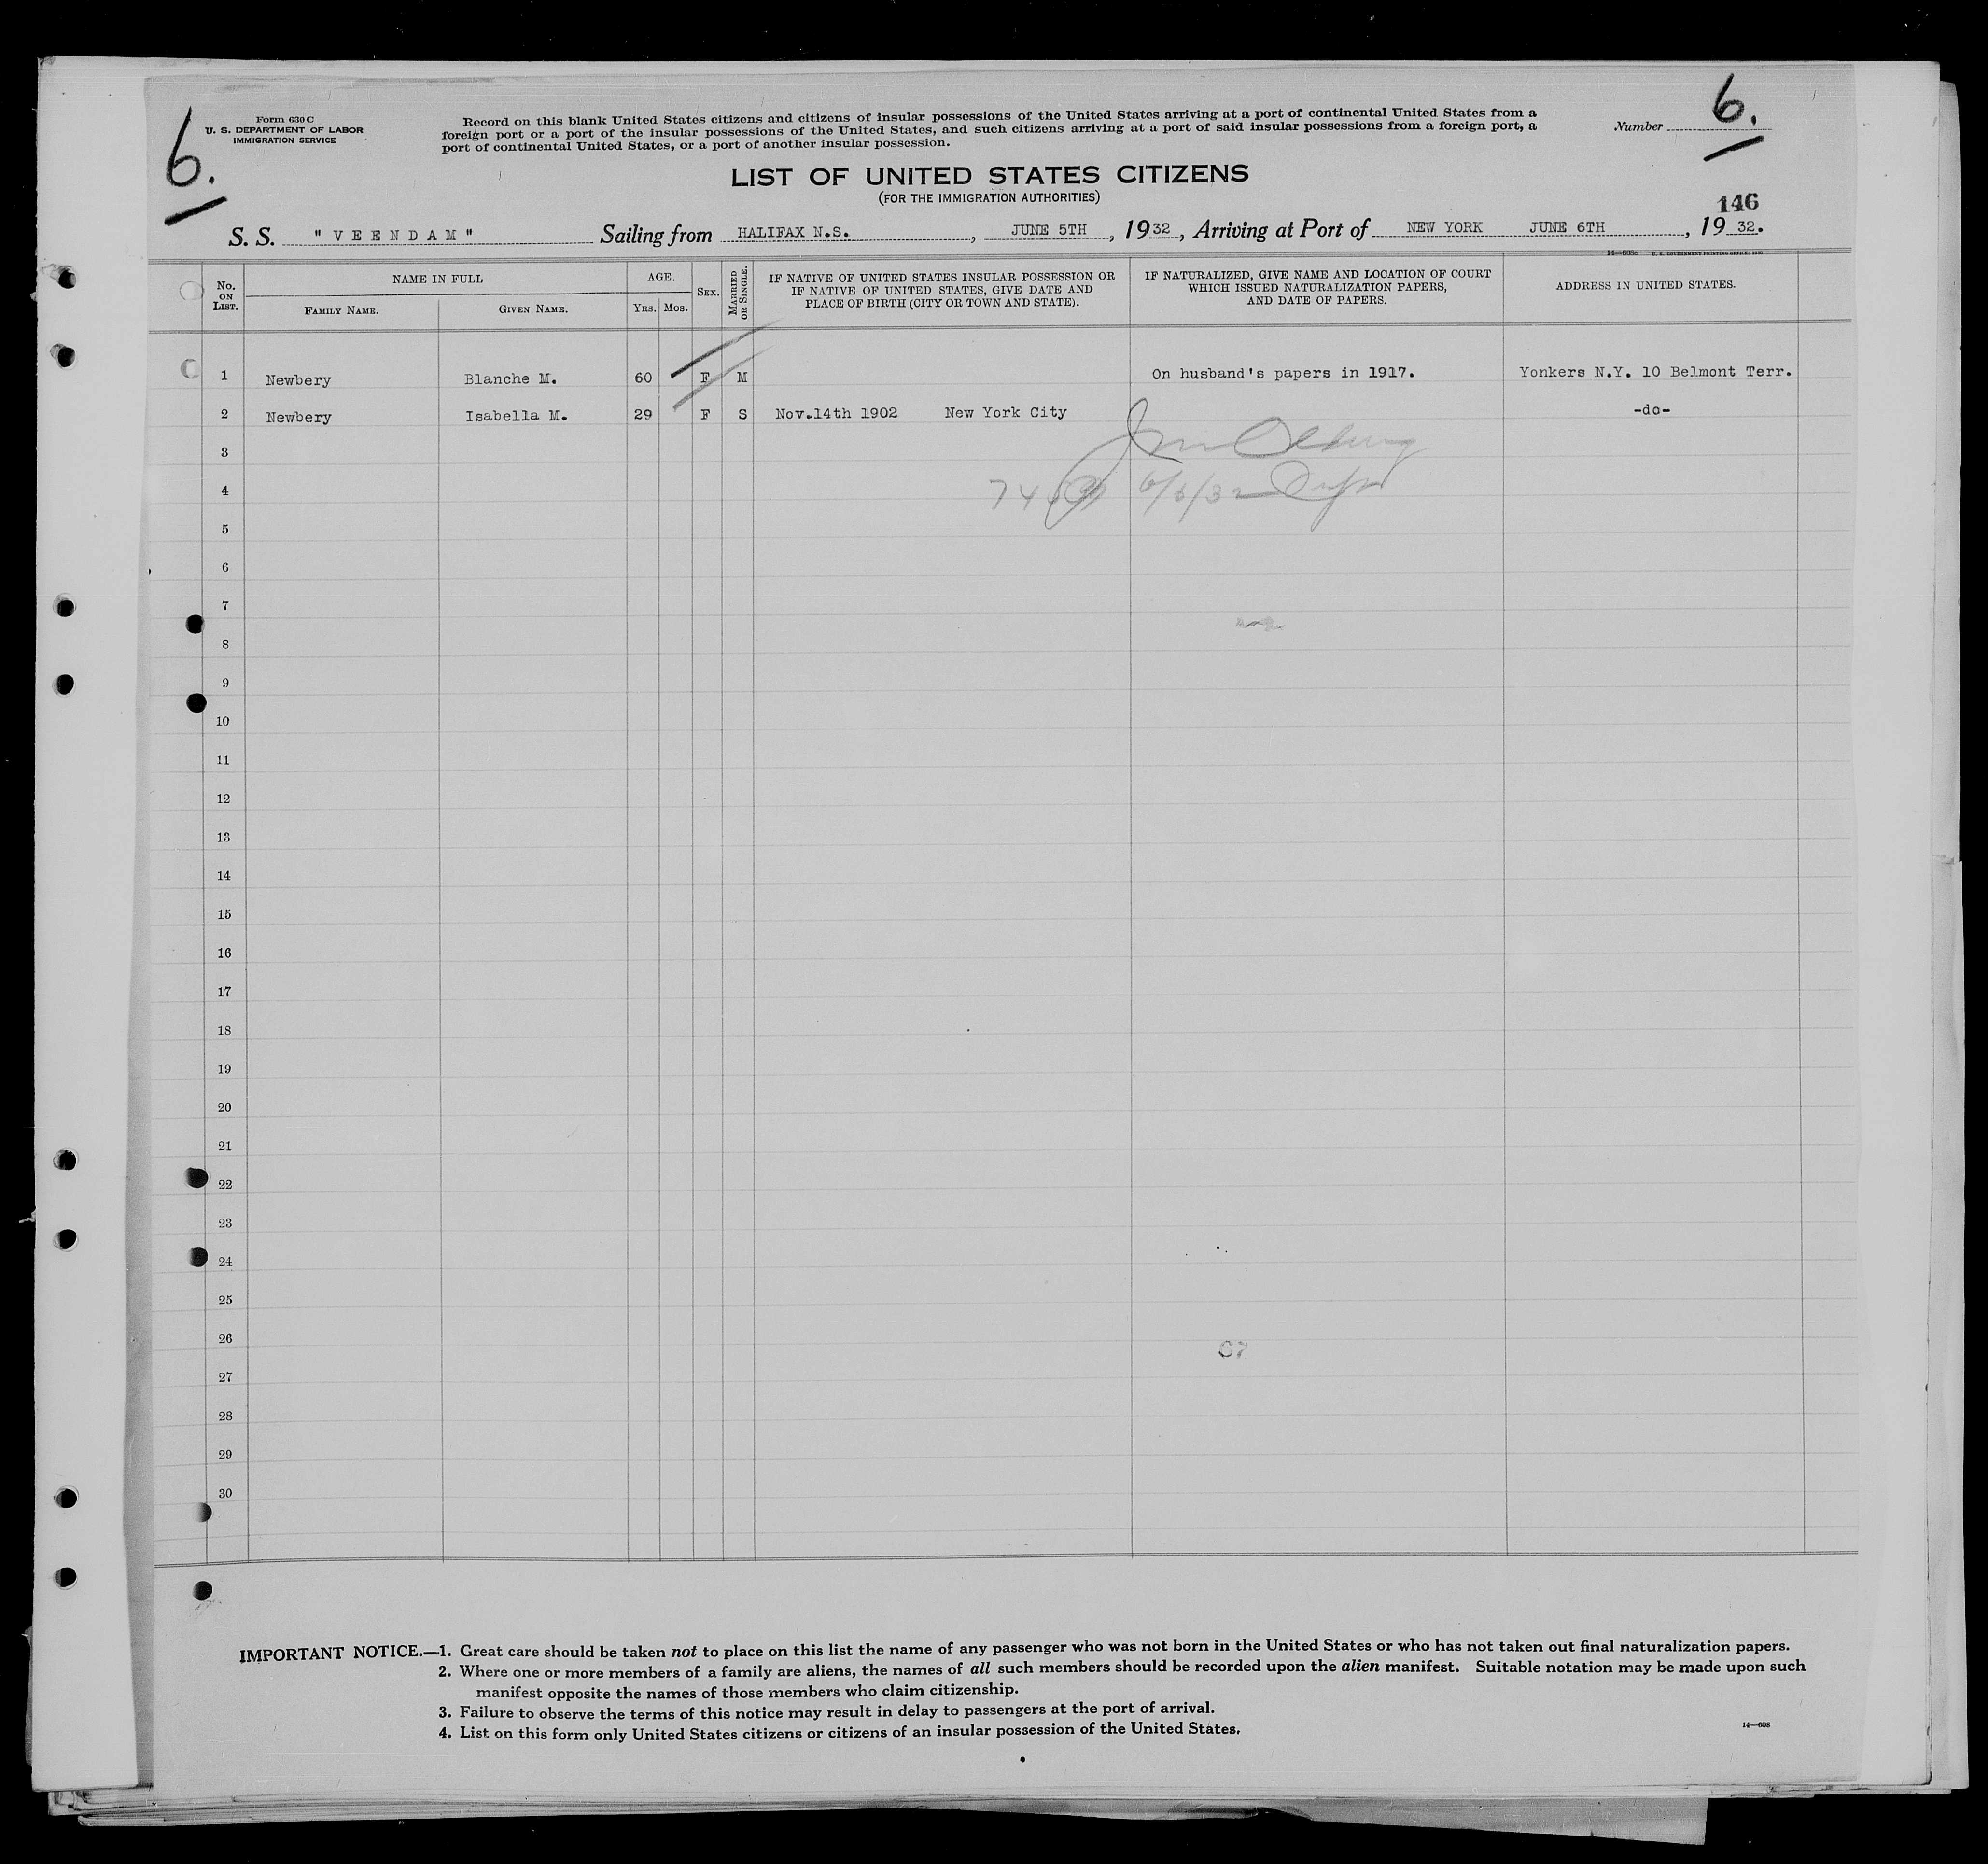 6.
Form 630 C
U. S. DEPARTMENT OF LABOR
IMMIGRATION SERVICE
Record on this blank United States citizens and citizens of insular possessions of the United States arriving at a port of continental United States from a
foreign port or a port of the insular possessions of the United States, and such citizens arriving at a port of said insular possessions from a foreign port, a
port of continental United States, or a port of another insular possession.
Number 6.
LIST OF UNITED STATES CITIZENS
(FOR THE IMMIGRATION AUTHORITIES)
146
S. S. "VEENDAM" Sailing from HALIFAX N.S., JUNE 5TH, 1932, Arriving at Port of NEW YORK JUNE 6TH, 1932.
14—608c U. S. GOVERNMENT PRINTING OFFICE
No. ON LIST. NAME IN FULL AGE. SEX. MARRIED OR SINGLE. IF NATIVE OF UNITED STATES INSULAR POSSESSION OR IF NATIVE OF UNITED STATES, GIVE DATE AND PLACE OF BIRTH (CITY OR TOWN AND STATE). IF NATURALIZED, GIVE NAME AND LOCATION OF COURT WHICH ISSUED NATURALIZATION PAPERS, AND DATE OF PAPERS. ADDRESS IN UNITED STATES.
FAMILY NAME. GIVEN NAME. YRS. MOS.
C 1 Newbery Blanche M. 60 F M On husband's papers in 1917. Yonkers N.Y. 10 Belmont Terr.
2 Newbery Isabella M. 29 F S Nov.14th 1902 New York City -do-
3
4 6/6/32
5
6
7
8
9
10
11
12
13
14
15
16
17
18
19
20
21
22
23
24
25
26
27
28
29
30
IMPORTANT NOTICE.—1. Great care should be taken not to place on this list the name of any passenger who was not born in the United States or who has not taken out final naturalization papers.
2. Where one or more members of a family are aliens, the names of all such members should be recorded upon the alien manifest. Suitable notation may be made upon such
manifest opposite the names of those members who claim citizenship.
3. Failure to observe the terms of this notice may result in delay to passengers at the port of arrival.
4. List on this form only United States citizens or citizens of an insular possession of the United States.
14—608